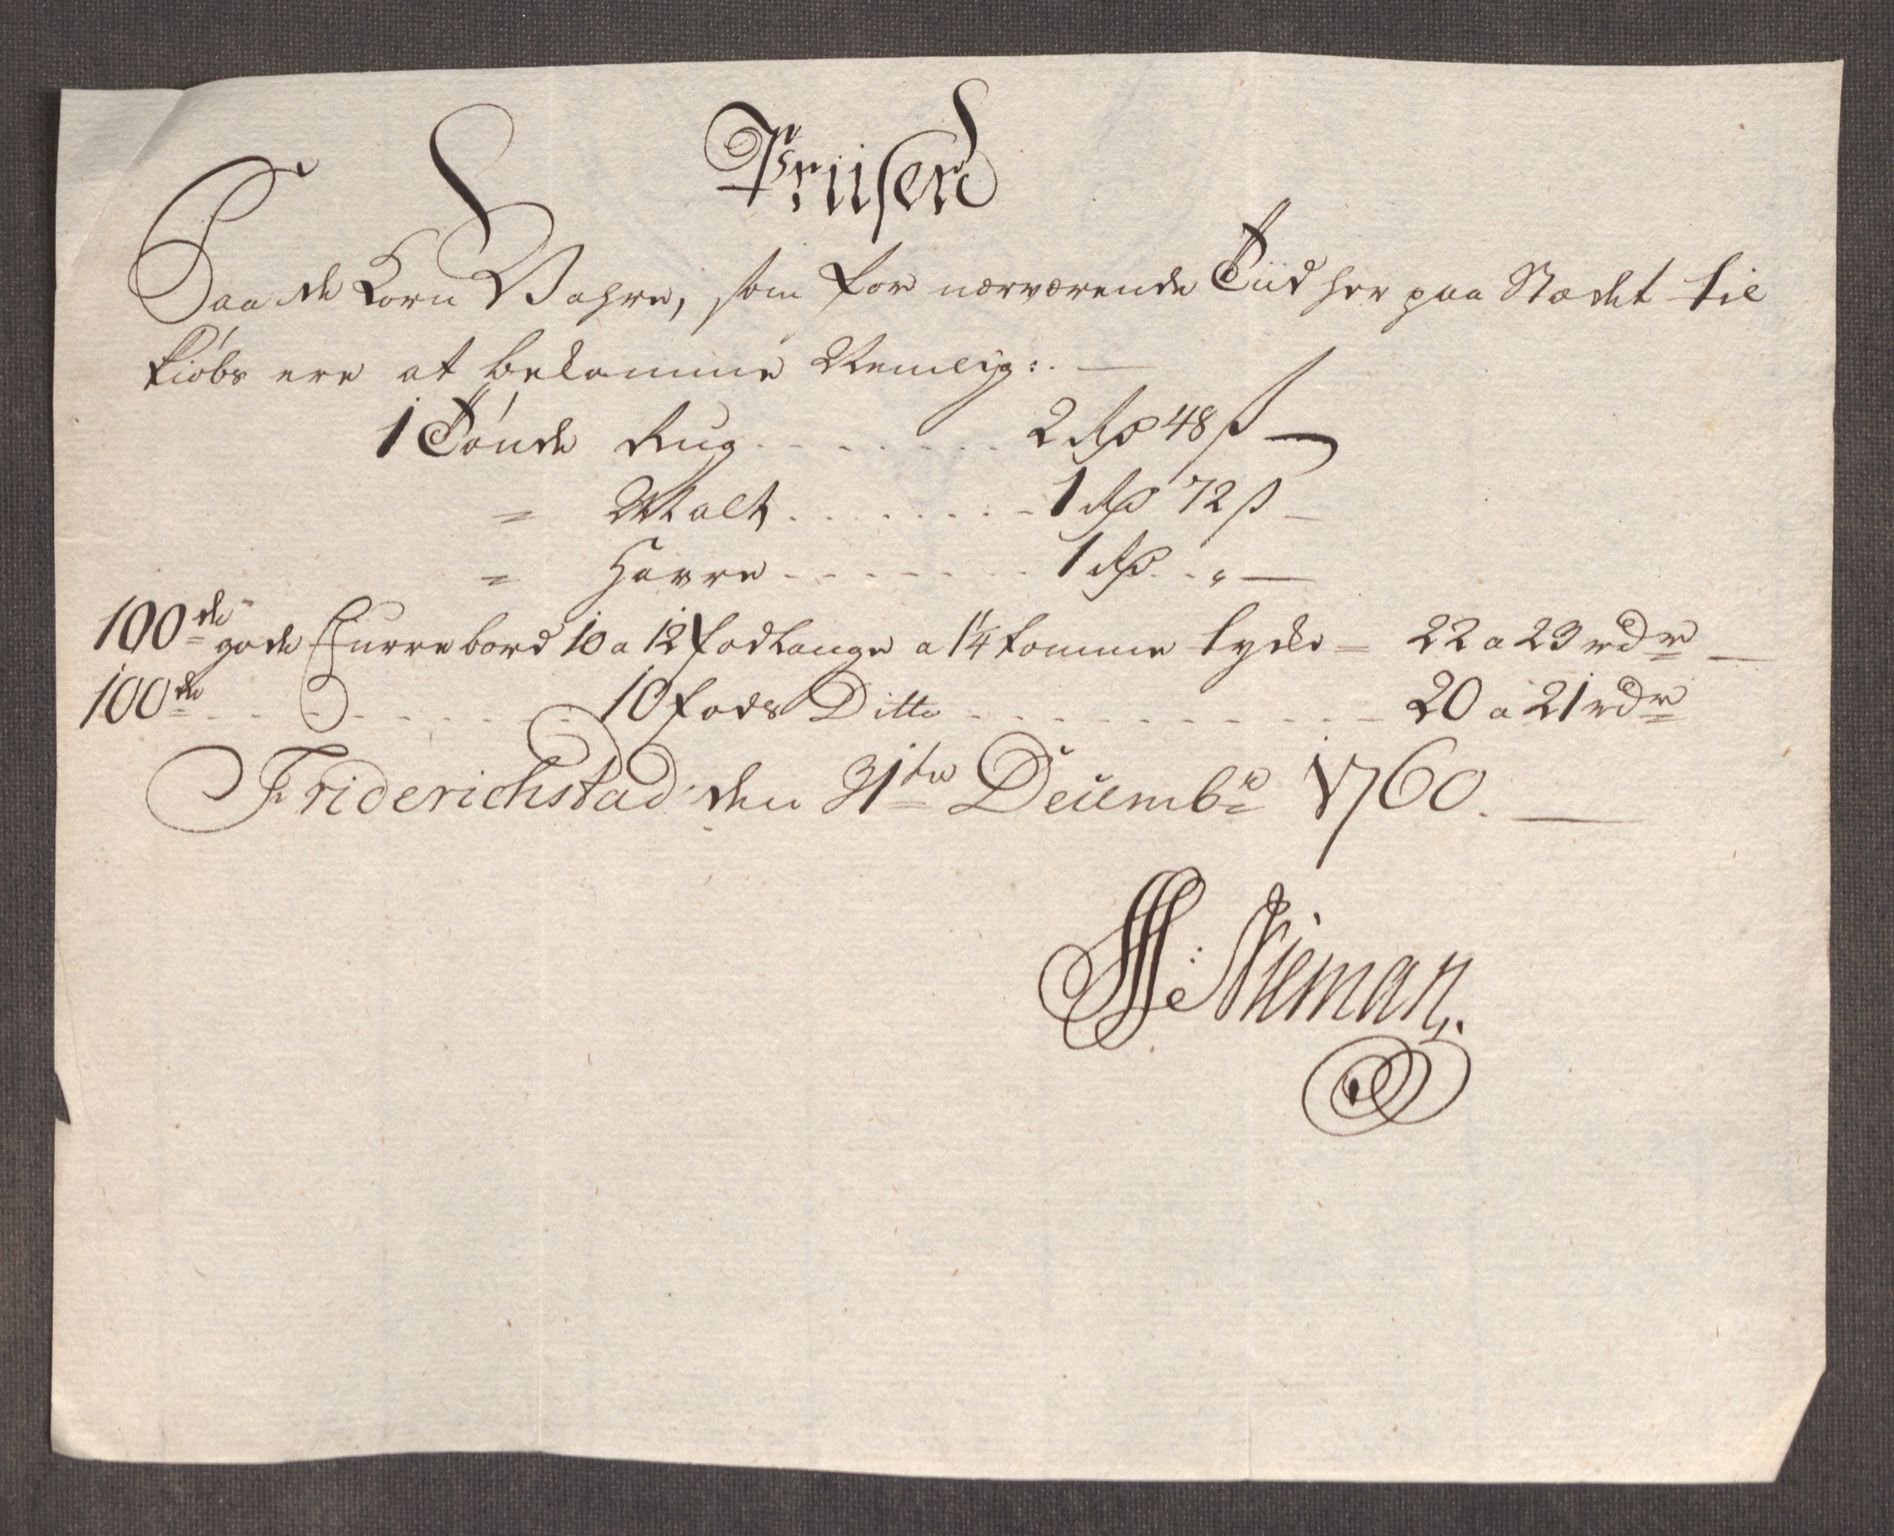 Priisen
Paa de Korn Vahre, som for nærværende Tiid her paa Stædet til
kiøbs ere at bekomme Nemlig:
1 Tønde Rug . . . . . . . 2 Rd 48 s
= Malt . . . . . . . 1 Rd 72 s
= Havre . . . . . . . 1 Rd „
100de gode Furrebord 10 a 12 fod Lange a 1 1/4 tomme tykke = 22 a 23 rdr
100de . . . . . . . 10 fods Ditto . . . . . . . 20 a 21 rdr
Friderichstad den 31te Decembr 1760.
Nieman